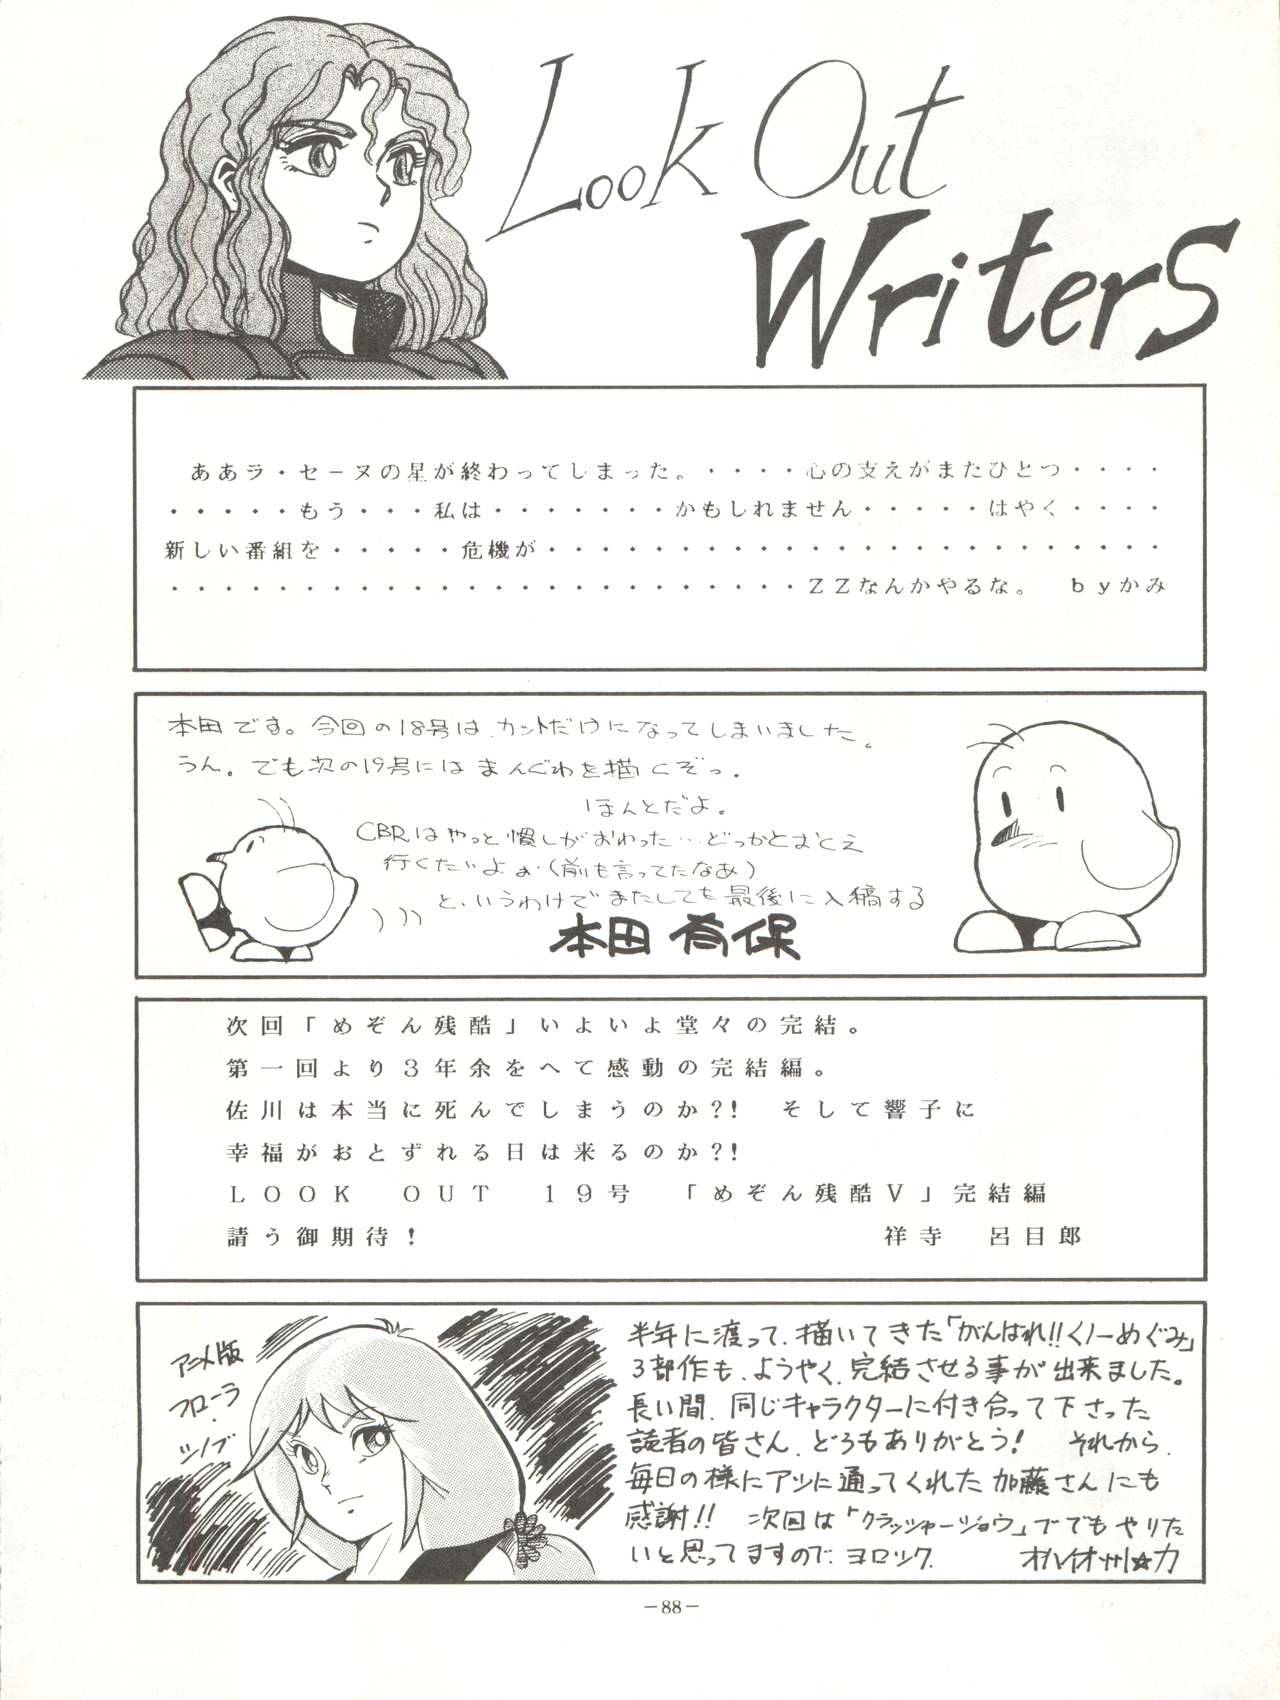 Look Out
Writers
ああラ・セーヌの星が終わってしまった。・・・・心の支えがまたひとつ・・・・
・・・・・もう・・・私は・・・・・・・かもしれません・・・・・はやく・・・・
新しい番組を・・・・・危機が・・・・・・・・・・・・・・・・・・・・・・・
・・・・・・・・・・・・・・・・・・・・・・・・ＺＺなんかやるな。　ｂｙかみ
本田です。今回の18号は、カットだけになってしまいました。
うん。でも次の19号にはまんぐわを描くぞっ.
ほんとだよ。
CBRはやっと慣しがおわった…どっかとおくえ
行くたいよぉ.(前も言ってたなあ)
と、いうわけでまたしても最後に入稿する
本田 有保
次回「めぞん残酷」いよいよ堂々の完結。
第一回より３年余をへて感動の完結編。
佐川は本当に死んでしまうのか?!　そして響子に
幸福がおとずれる日は来るのか?!
ＬＯＯＫ　ＯＵＴ　１９号　「めぞん残酷Ｖ」完結編
請う御期待！　祥寺　呂目郎
アニメ版
フローラ・
ツノブ
半年に渡って、描いてきた「がんばれ!!くノ一めぐみ」
3部作も、ようやく、完結させる事が出来ました。
長い間、同じキャラクターに付き合って下さった
読者の皆さん、どうもありがとう!　それから、
毎日の様にアシに通ってくれた加藤さんにも
感謝!!　次回は「クラッシャージョウ」ででもやりた
いと思ってますので、ヨロシク.　オハイオ州☆力
－88－